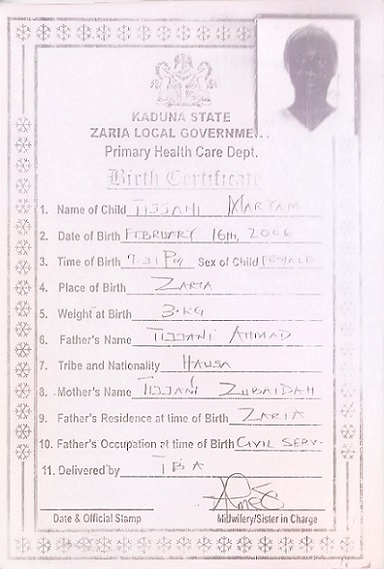 KADUNA STATE
ZARIA LOCAL GOVERNME
Primary Health Care Dept.
Birth Certificate
1. Name of Child TIJJANI MARYAM
2. Date of Birth FEBRUARY 16th, 2006
3. Time of Birth 7.31 PM Sex of Child FEMALE
4. Place of Birth ZARIA
5. Weight at Birth 3.KG
6. Father's Name TIJJANI AHMAD
7. Tribe and Nationality HAUSA
8. Mother's Name TIJJANI ZUBAIDAH
9. Father's Residence at time of Birth ZARIA
10. Father's Occupation at time of Birth CIVIL SERV.
11. Delivered by TBA
Date & Official Stamp Midwifery/Sister in Charge